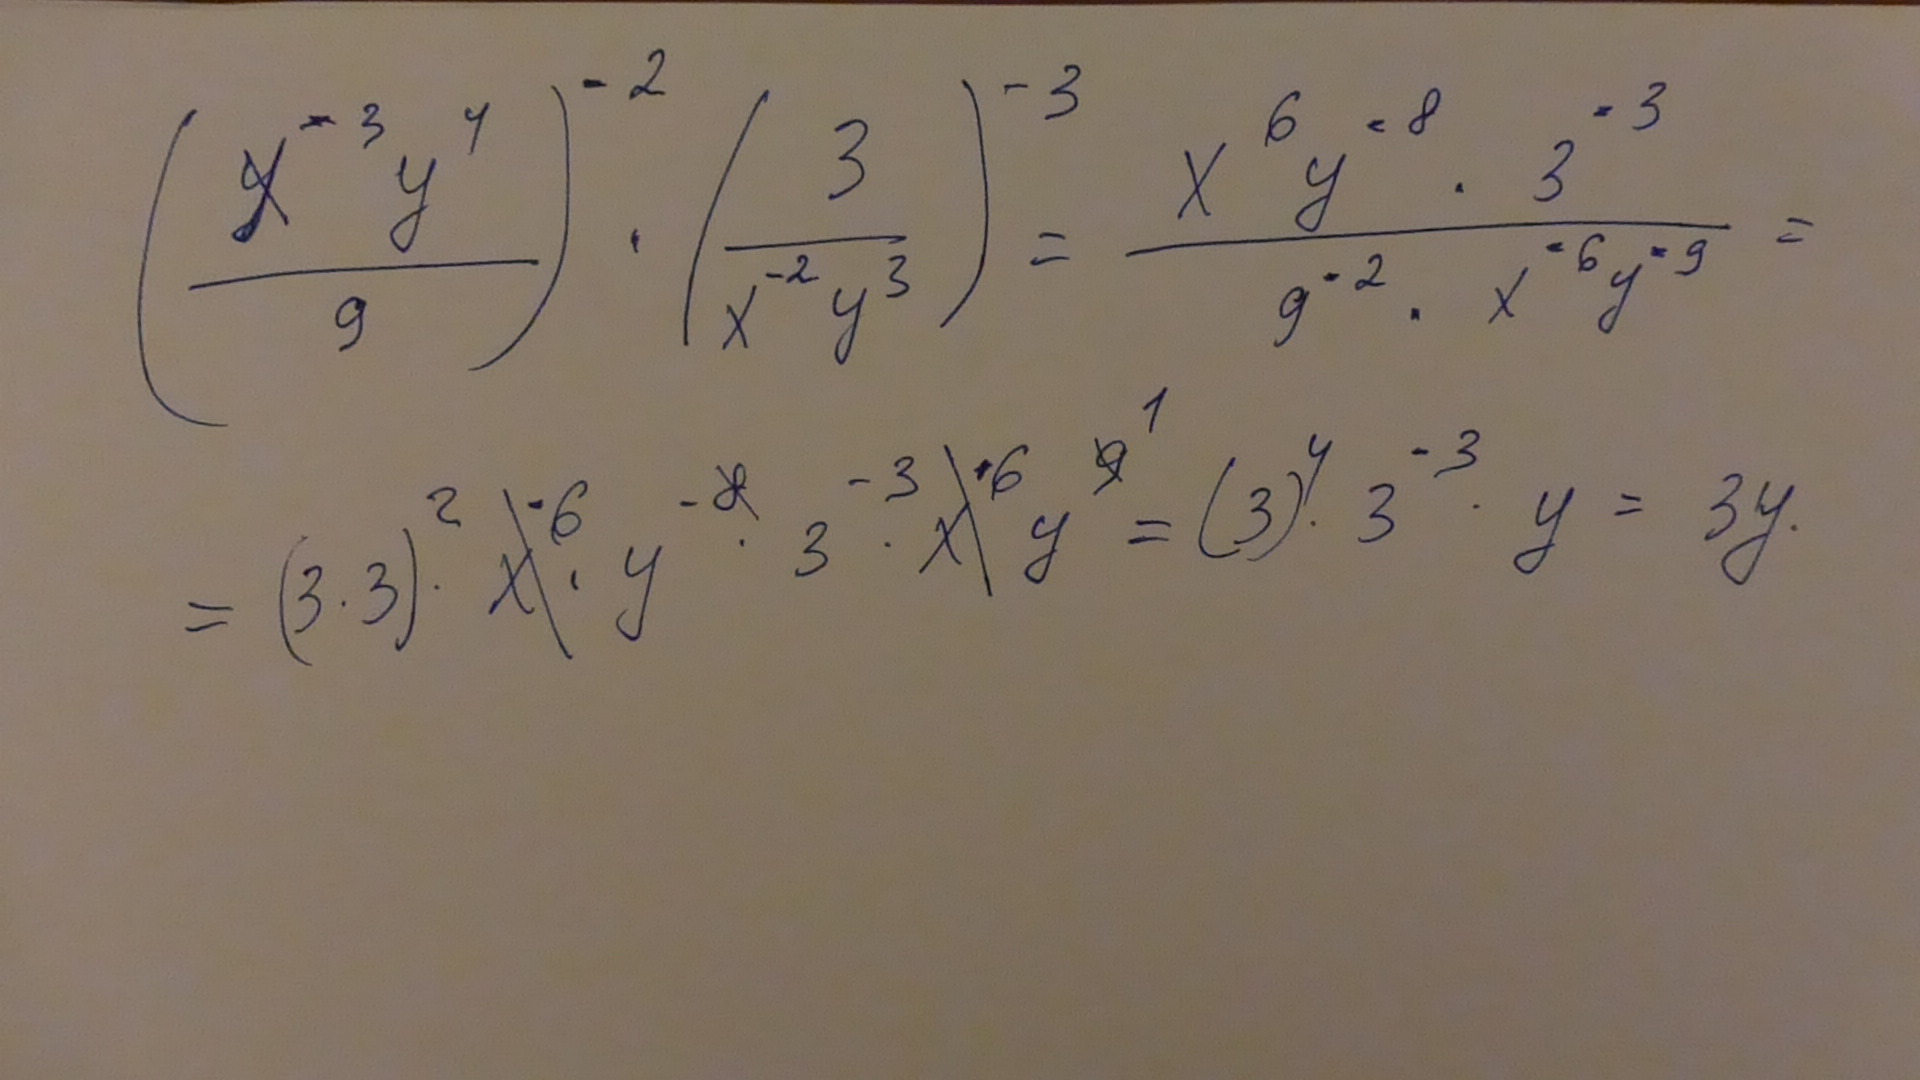 (x^-3 y^4 / 9)^-2 · (3 / x^-2 y^3)^-3 = x^6 y^-8 · 3^-3 / 9^-2 · x^-6 y^-9 =
= (3·3)^2 · x^-6 · y^-8 · 3^-3 · x^+6 y^9 1 = (3)^4 · 3^-3 · y = 3y.